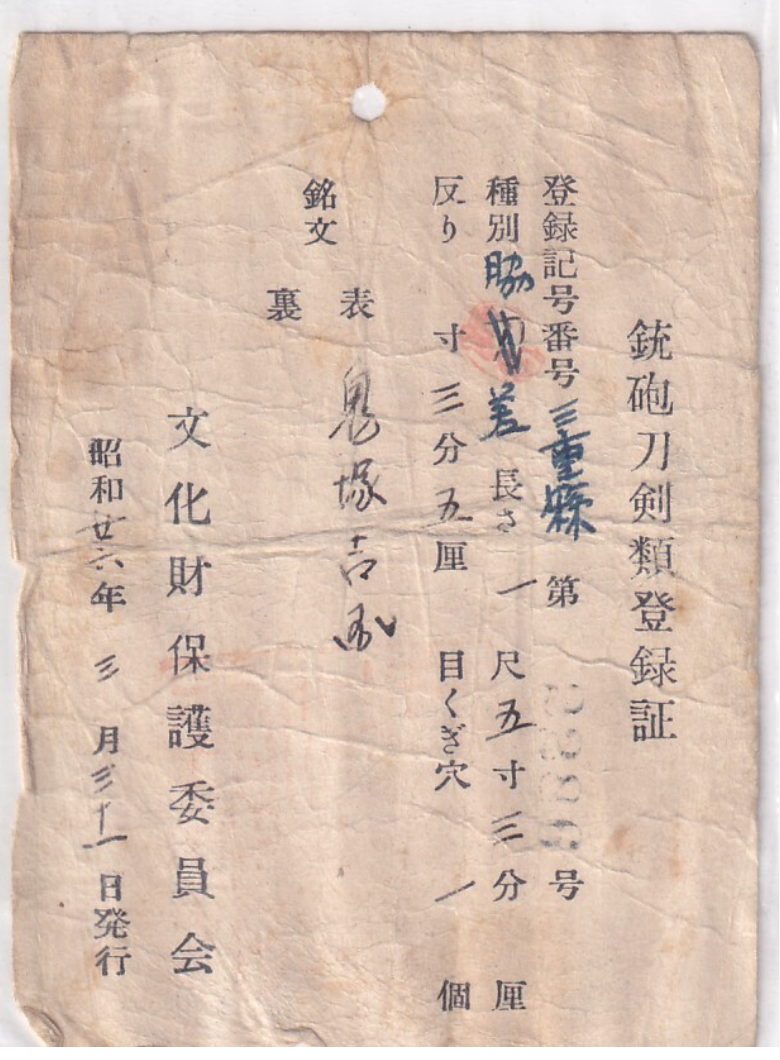 銃砲刀剣類登録証
登録記号番号 三重縣 第 号
種別 脇差 長さ 一尺五寸三分 厘
反り 寸三分五厘 目くぎ穴 一個
銘文 表 鬼塚吉国
裏
文化財保護委員会
昭和廿六年三月三十一日発行